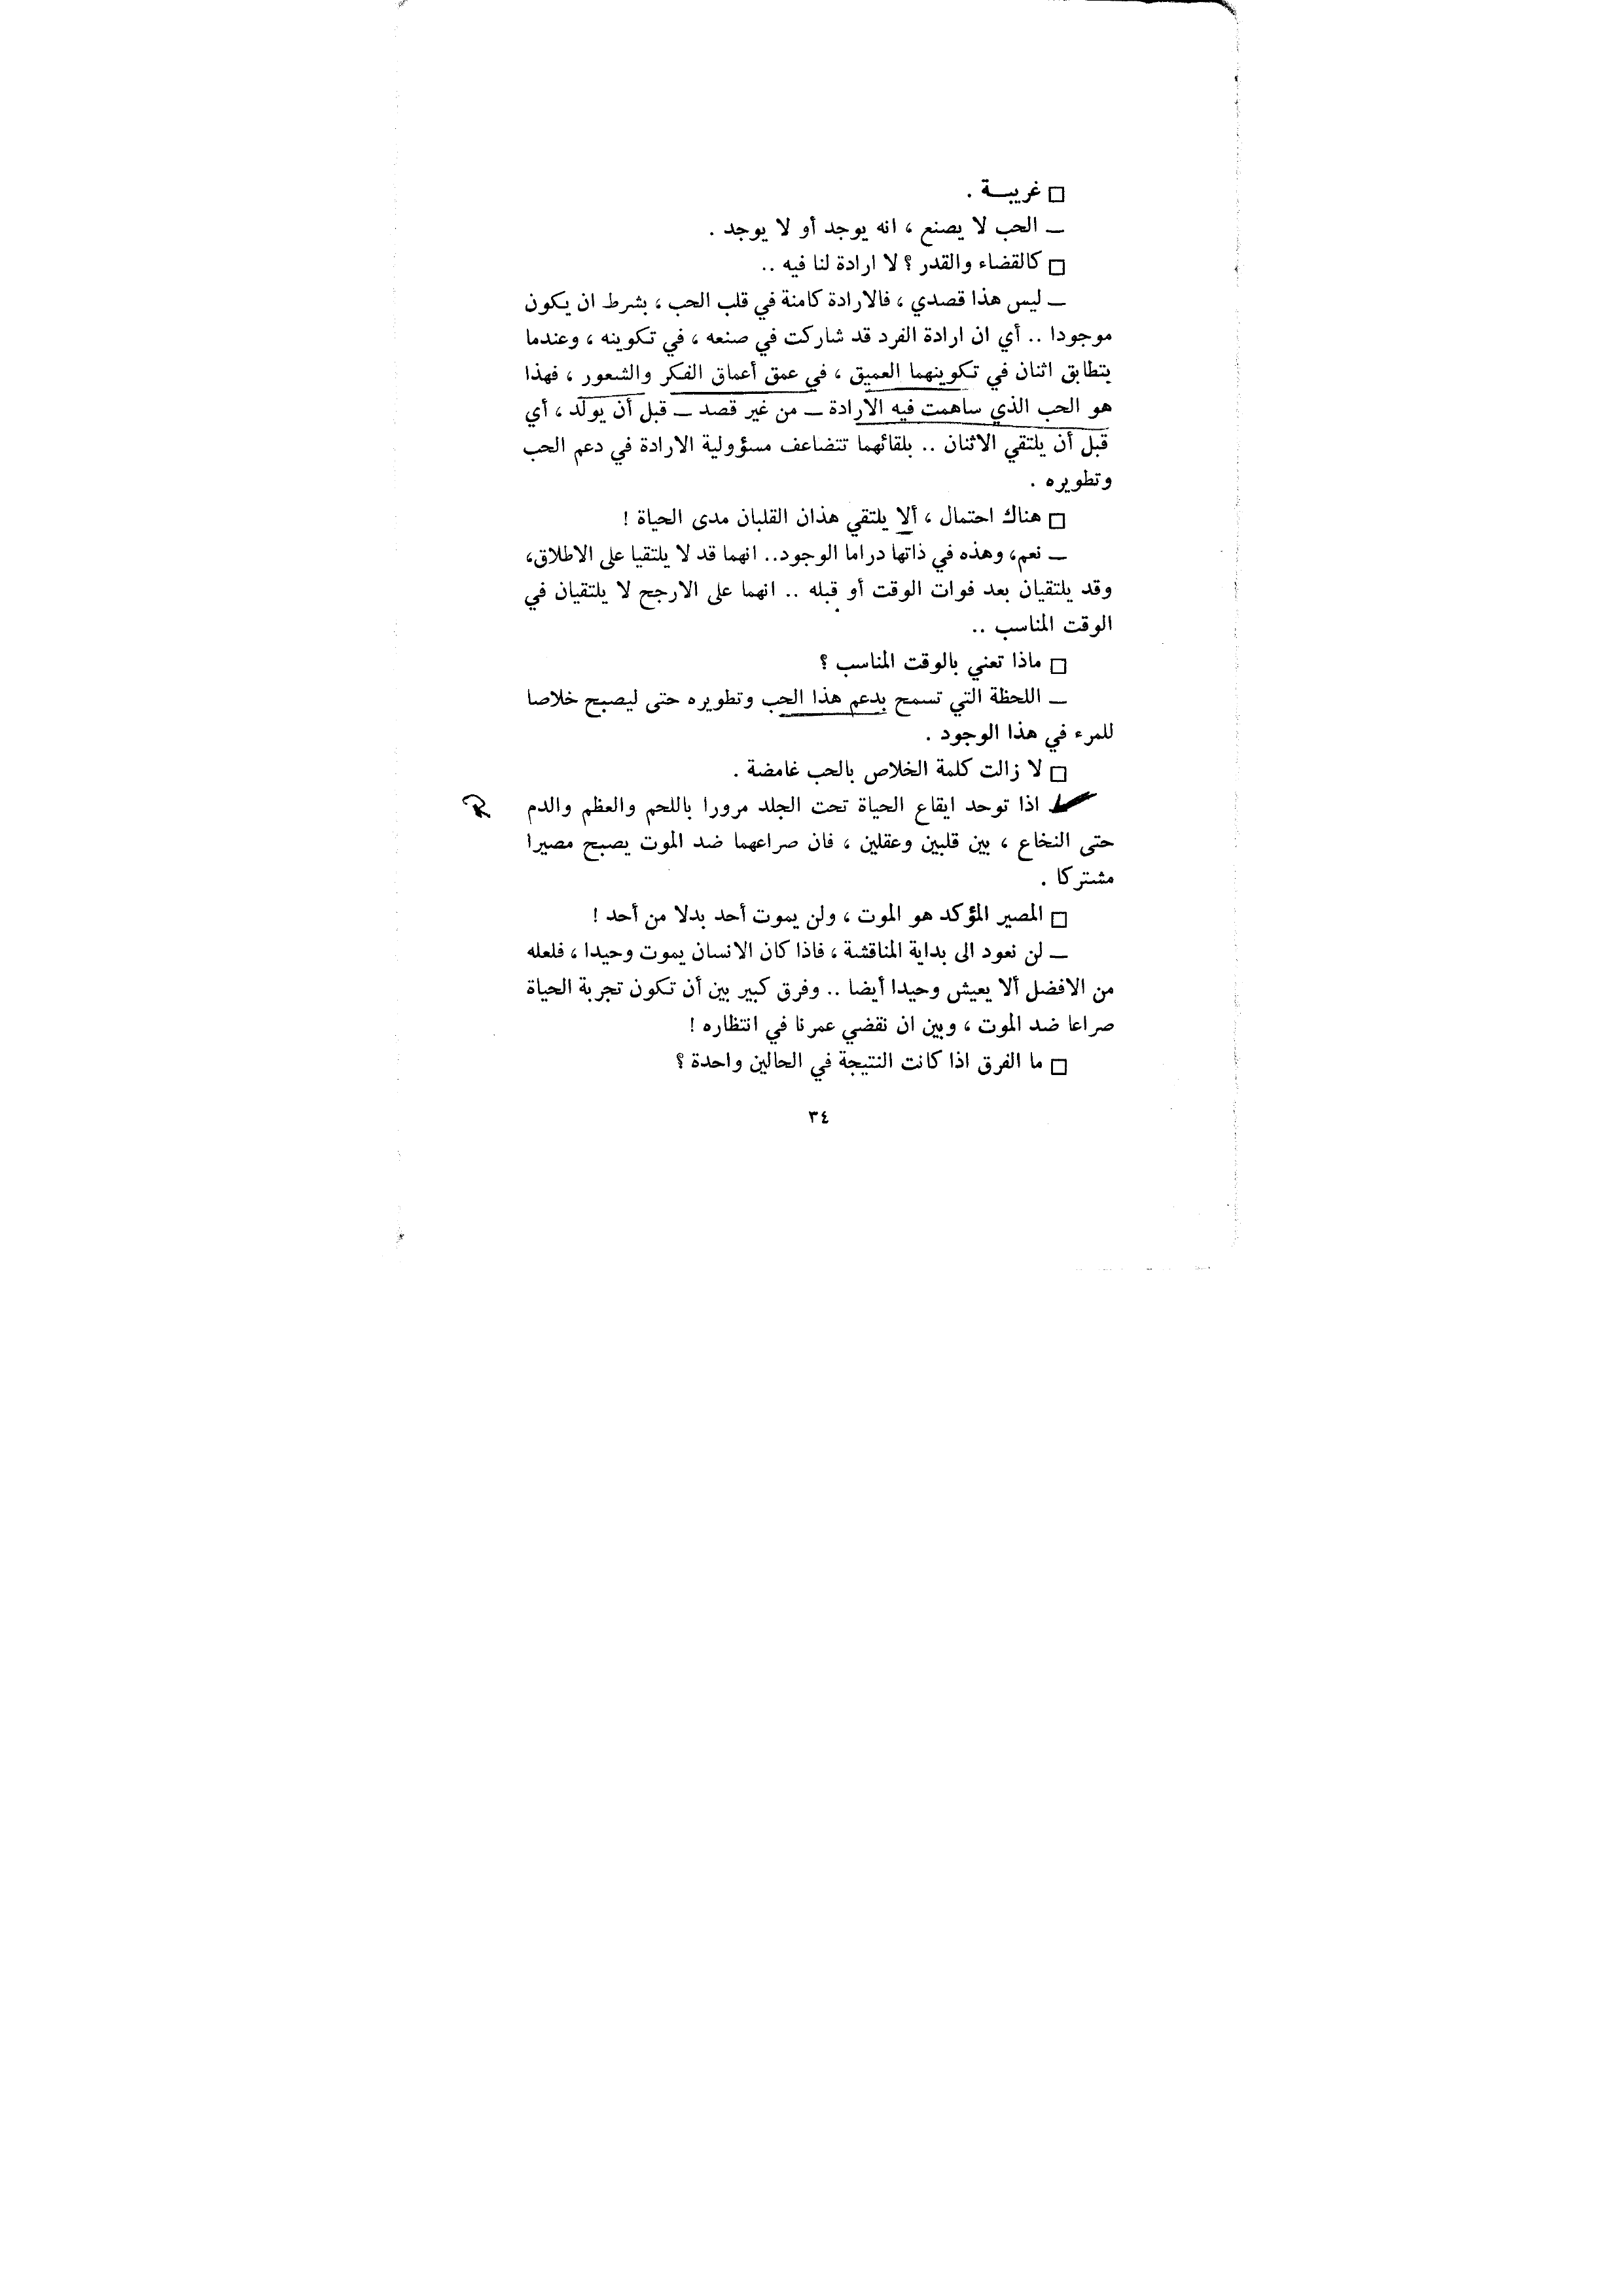 □ غريبــة .
ـ الحب لا يصنع ، انه يوجد أو لا يوجد .
□ كالقضاء والقدر ؟ لا ارادة لنا فيه ..
ـ ليس هذا قصدي ، فالارادة كامنة في قلب الحب ، بشرط ان يكون
موجودا .. أي ان ارادة الفرد قد شاركت في صنعه ، في تكوينه ، وعندما
يتطابق اثنان في تكوينهما العميق ، في عمق أعماق الفكر والشعور ، فهذا
هو الحب الذي ساهمت فيه الارادة ـ من غير قصد ـ قبل أن يولد ، أي
قبل أن يلتقي الاثنان .. بلقائهما تتضاعف مسؤولية الارادة في دعم الحب
وتطويره .
□ هناك احتمال ، ألا يلتقي هذان القلبان مدى الحياة !
ـ نعم، وهذه في ذاتها دراما الوجود.. انهما قد لا يلتقيا على الاطلاق،
وقد يلتقيان بعد فوات الوقت أو قبله .. انهما على الارجح لا يلتقيان في
الوقت المناسب ..
□ ماذا تعني بالوقت المناسب ؟
ـ اللحظة التي تسمح بدعم هذا الحب وتطويره حتى ليصبح خلاصا
للمرء في هذا الوجود .
□ لا زالت كلمة الخلاص بالحب غامضة .
ـ اذا توحد ايقاع الحياة تحت الجلد مرورا باللحم والعظم والدم
حتى النخاع ، بين قلبين وعقلين ، فان صراعهما ضد الموت يصبح مصيرا
مشتركا .
□ المصير المؤكد هو الموت ، ولن يموت أحد بدلا من أحد !
ـ لن نعود الى بداية المناقشة ، فاذا كان الانسان يموت وحيدا ، فلعله
من الافضل ألا يعيش وحيدا أيضا .. وفرق كبير بين أن تكون تجربة الحياة
صراعا ضد الموت ، وبين ان نقضي عمرنا في انتظاره !
□ ما الفرق اذا كانت النتيجة في الحالين واحدة ؟
٣٤